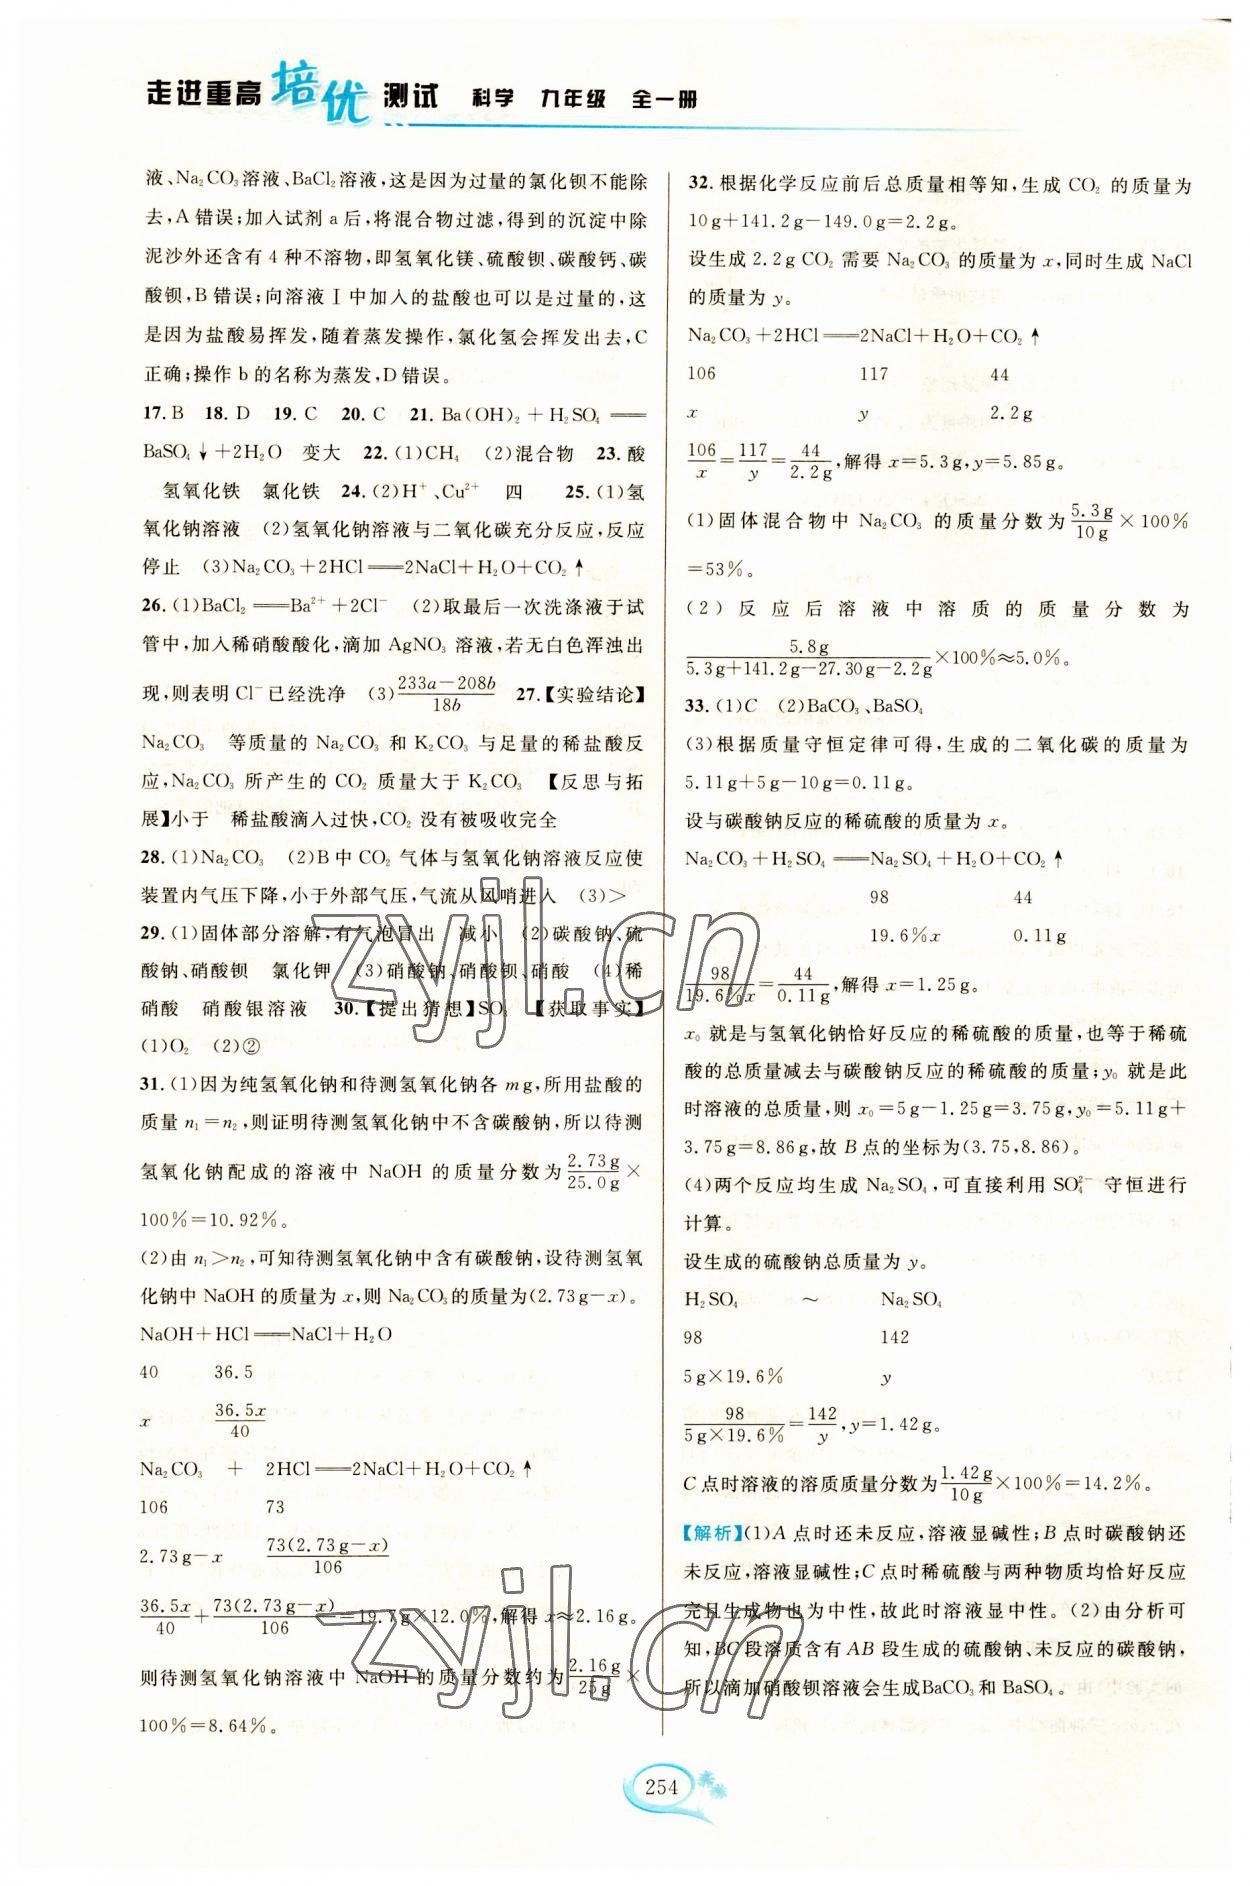 走进重高培优测试 科学 九年级 全一册
液、Na₂CO₃溶液、BaCl₂溶液,这是因为过量的氯化钡不能除
去,A错误;加入试剂a后,将混合物过滤,得到的沉淀中除
泥沙外还含有4种不溶物,即氢氧化镁、硫酸钡、碳酸钙、碳
酸钡,B错误;向溶液Ⅰ中加入的盐酸也可以是过量的,这
是因为盐酸易挥发,随着蒸发操作,氯化氢会挥发出去,C
正确;操作b的名称为蒸发,D错误。
17.B 18.D 19.C 20.C 21.Ba(OH)₂+H₂SO₄══
BaSO₄↓+2H₂O 变大 22.(1)CH₄ (2)混合物 23.酸
氢氧化铁 氯化铁 24.(2)H⁺、Cu²⁺ 四 25.(1)氢
氧化钠溶液 (2)氢氧化钠溶液与二氧化碳充分反应,反应
停止 (3)Na₂CO₃+2HCl══2NaCl+H₂O+CO₂↑
26.(1)BaCl₂══Ba²⁺+2Cl⁻ (2)取最后一次洗涤液于试
管中,加入稀硝酸酸化,滴加AgNO₃溶液,若无白色浑浊出
现,则表明Cl⁻已经洗净 (3)(233a-208b)/18b 27.【实验结论】
Na₂CO₃ 等质量的Na₂CO₃和K₂CO₃与足量的稀盐酸反
应,Na₂CO₃所产生的CO₂质量大于K₂CO₃ 【反思与拓
展】小于 稀盐酸滴入过快,CO₂没有被吸收完全
28.(1)Na₂CO₃ (2)B中CO₂气体与氢氧化钠溶液反应使
装置内气压下降,小于外部气压,气流从风哨进入 (3)>
29.(1)固体部分溶解,有气泡冒出 减小 (2)碳酸钠、硫
酸钠、硝酸钡 氯化钾 (3)硝酸钠、硝酸钡、硝酸 (4)稀
硝酸 硝酸银溶液 30.【提出猜想】SO₂ 【获取事实】
(1)O₂ (2)②
31.(1)因为纯氢氧化钠和待测氢氧化钠各mg,所用盐酸的
质量n₁=n₂,则证明待测氢氧化钠中不含碳酸钠,所以待测
氢氧化钠配成的溶液中NaOH的质量分数为2.73g/25.0g×
100%=10.92%。
(2)由n₁>n₂,可知待测氢氧化钠中含有碳酸钠,设待测氢氧
化钠中NaOH的质量为x,则Na₂CO₃的质量为(2.73g-x)。
NaOH+HCl══NaCl+H₂O
40 36.5
x 36.5x/40
Na₂CO₃ + 2HCl══2NaCl+H₂O+CO₂↑
106 73
2.73g-x 73(2.73g-x)/106
36.5x/40+73(2.73g-x)/106=19.7g×12.0%,解得x≈2.16g。
则待测氢氧化钠溶液中NaOH的质量分数约为2.16g/25g×
100%=8.64%。
32.根据化学反应前后总质量相等知,生成CO₂的质量为
10g+141.2g-149.0g=2.2g。
设生成2.2gCO₂需要Na₂CO₃的质量为x,同时生成NaCl
的质量为y。
Na₂CO₃+2HCl══2NaCl+H₂O+CO₂↑
106 117 44
x y 2.2g
106/x=117/y=44/2.2g,解得x=5.3g,y=5.85g。
(1)固体混合物中Na₂CO₃的质量分数为5.3g/10g×100%
=53%。
(2)反应后溶液中溶质的质量分数为
5.8g/(5.3g+141.2g-27.30g-2.2g)×100%≈5.0%。
33.(1)C (2)BaCO₃、BaSO₄
(3)根据质量守恒定律可得,生成的二氧化碳的质量为
5.11g+5g-10g=0.11g。
设与碳酸钠反应的稀硫酸的质量为x。
Na₂CO₃+H₂SO₄══Na₂SO₄+H₂O+CO₂↑
98 44
19.6%x 0.11g
98/19.6%x=44/0.11g,解得x=1.25g。
x₀就是与氢氧化钠恰好反应的稀硫酸的质量,也等于稀硫
酸的总质量减去与碳酸钠反应的稀硫酸的质量;y₀就是此
时溶液的总质量,则x₀=5g-1.25g=3.75g,y₀=5.11g+
3.75g=8.86g,故B点的坐标为(3.75,8.86)。
(4)两个反应均生成Na₂SO₄,可直接利用SO₄²⁻守恒进行
计算。
设生成的硫酸钠总质量为y。
H₂SO₄ ~ Na₂SO₄
98 142
5g×19.6% y
98/(5g×19.6%)=142/y,y=1.42g。
C点时溶液的溶质质量分数为1.42g/10g×100%=14.2%。
【解析】(1)A点时还未反应,溶液显碱性;B点时碳酸钠还
未反应,溶液显碱性;C点时稀硫酸与两种物质均恰好反应
完且生成物也为中性,故此时溶液显中性。(2)由分析可
知,BC段溶质含有AB段生成的硫酸钠、未反应的碳酸钠,
所以滴加硝酸钡溶液会生成BaCO₃和BaSO₄。
254
zyjl.cn
zyjl.cn